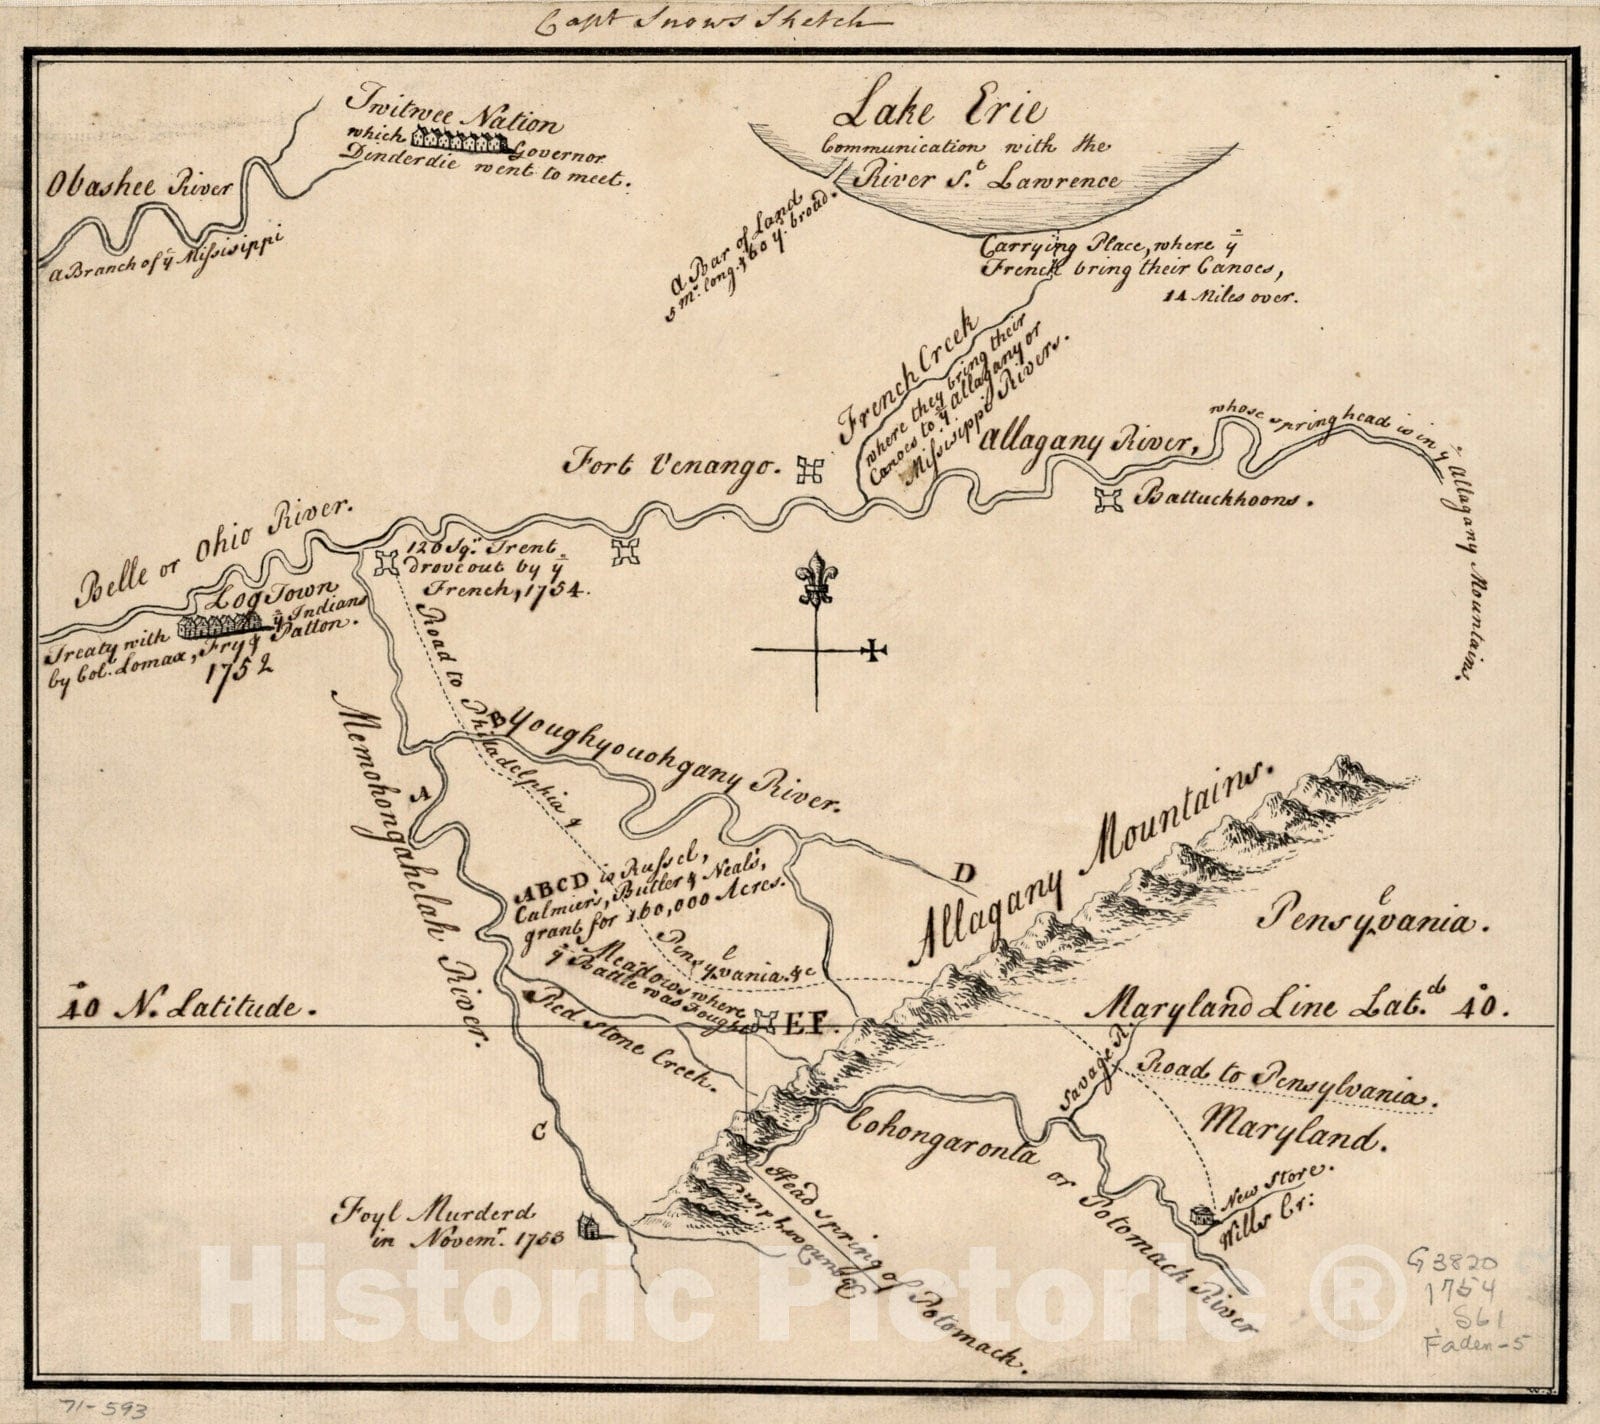 Capt Snows Sketch
Twitwee Nation
which Governor
Dinderdie went to meet.
Obashee River
a Branch of ye Missisippi
Lake Erie
Communication with the
River St. Lawrence
A Bar of Land
5 ml. long & 60 yd. broad.
Carrying Place, where ye
French bring their Canoes,
14 Miles over.
French Creek
where they bring their
Canoes to ye Allagany or
Missisippi Rivers.
Allagany River,
whose spring head is in ye Allagany Mountains.
Fort Venango.
Battuckhoons.
Belle or Ohio River.
120 Sqr. Trent
drove out by ye
French, 1754.
Log Town
Treaty with ye Indians
by Col. Lomax, Fry & Patton.
1752
Road to Philadelphia &
B
Youghyouohgany River.
Memohongahelah River.
A
ABCD is Russel,
Calmier's, Butler & Neal's,
grant for 160,000 Acres.
D
Allagany Mountains.
Pensylvania.
Pensylvania. &c
Meadows where
ye Battle was Fought
EF.
40 N. Latitude.
Maryland Line Latd. 40.
Red Stone Creek.
Savage R.
Road to Pensylvania.
Maryland.
Cohongaronta or Potomach River
C
New Store.
Wills Cr:
Foyl Murderd
in Novemr. 1753
Head spring of Potomach.
Historic Pictoric ®
G3820
1754
.S61
Faden-5
71-593